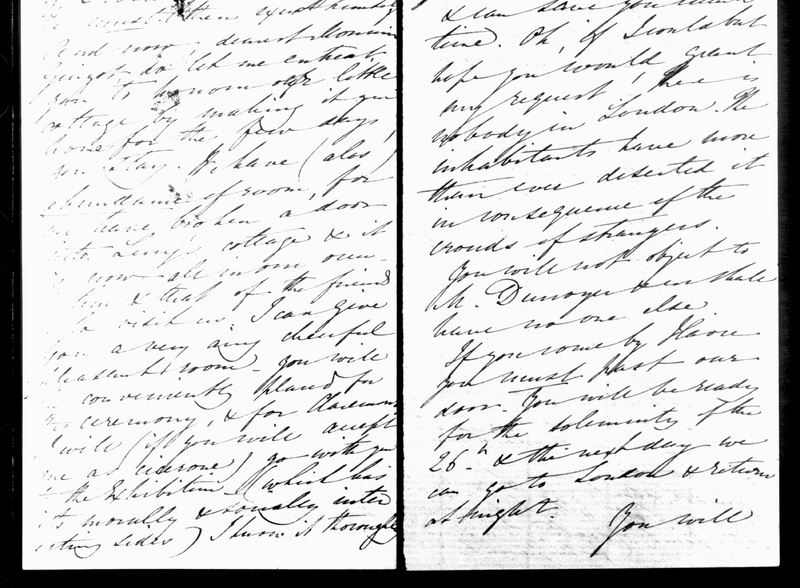 must then
And now, dearest Monsieur
do let me entreat
you to honour our little
cottage by making it your
home for the few days,
you stay. We have (alas)
abundance of room, for
we have broken a door
into cottage & it
is now all in our own
& that of the friends
visit us. I can give
you a very airy cheerful
pleasant room - you will
conveniently placed for
ceremony, & for Claremont
I will (if you will accept
me as cicerone) go with you
to the Exhibition (which has
its morally & socially inter
esting sides) I know it thoroughly
& can save you much
time. Oh, if I could but
hope you would grant
my request! There is
nobody in London. The
inhabitants have more
than ever deserted it
in consequence of the
crowds of strangers.
You will not object to
M. Dunoyer & we shall
have no one else.
If you come by Havre
you must past our
door. You will be ready
for the solemnity of the
26.th & the next day we
can go to London & return
at night.
You will